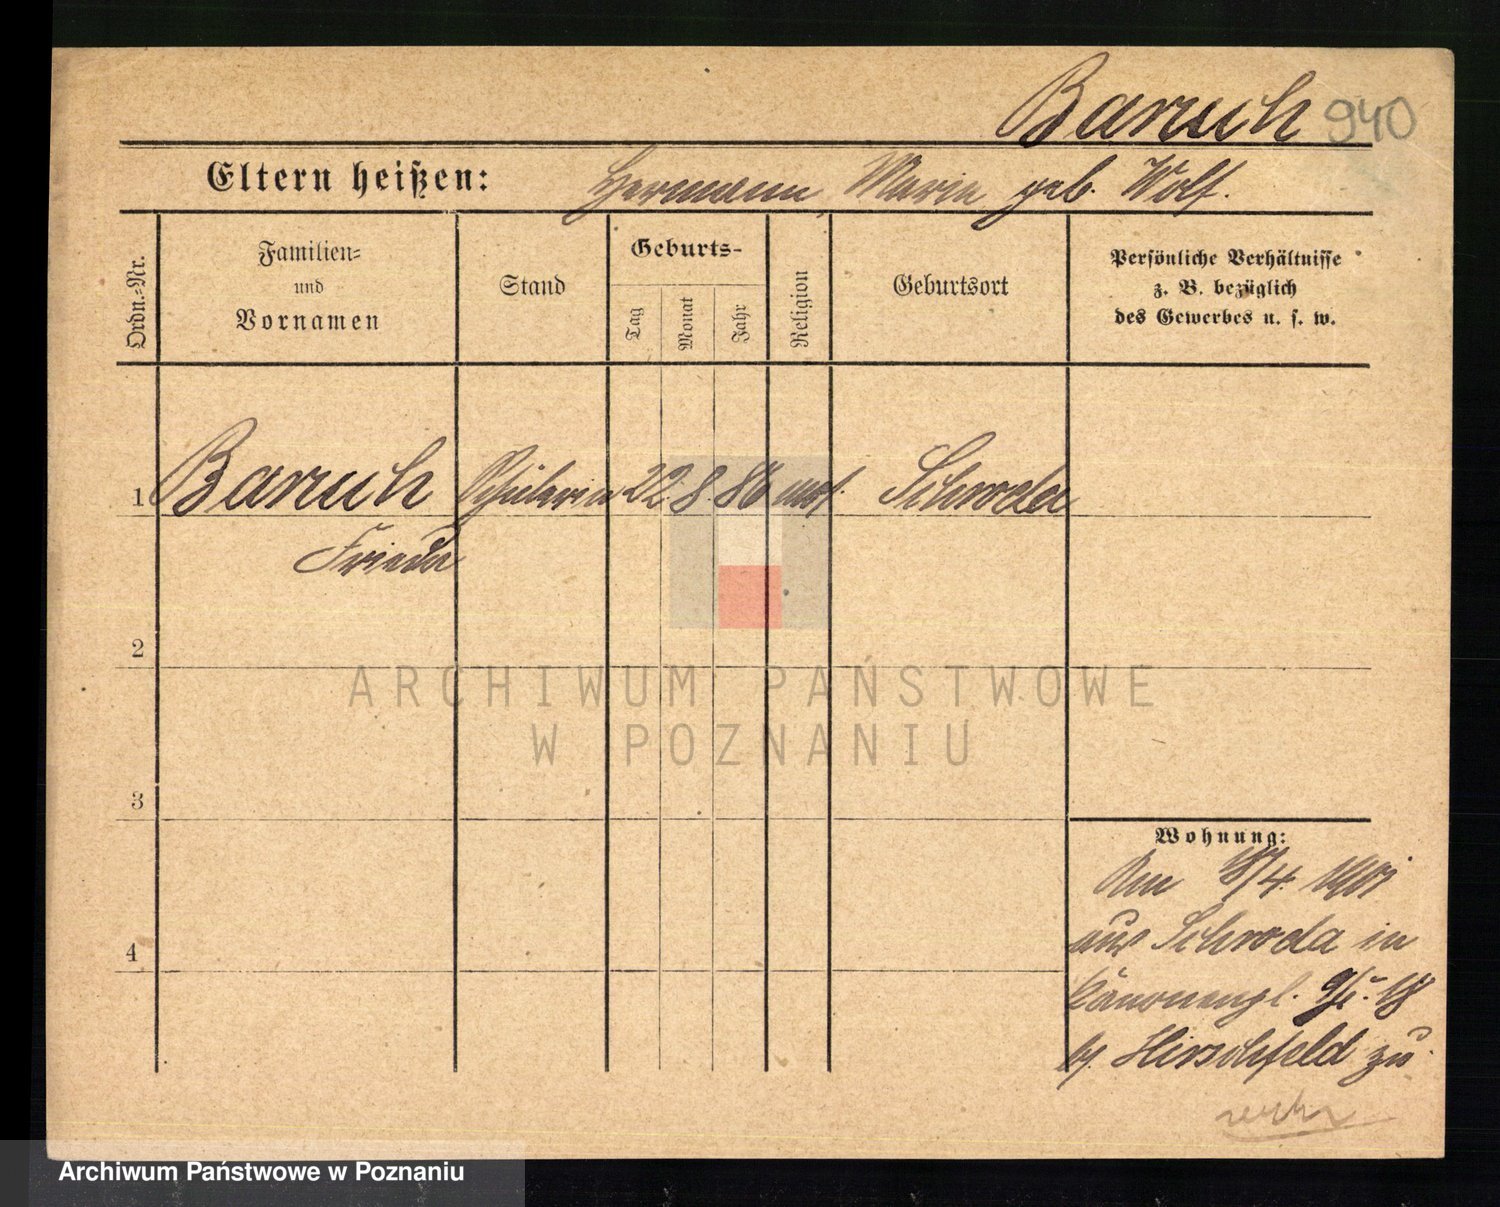 Baruch 940
Eltern heißen: Hermann, Marie geb. Wolf.
Ordn.-Nr.
Familien-
und
Vornamen
Stand
Geburts-
Tag
Monat
Jahr
Religion
Geburtsort
Persönliche Verhältnisse
z. B. bezüglich
des Gewerbes u. s. w.
1 Baruch Schülerin 22. 8. 86 mos. Schroda
Frieda
2
3
4
Wohnung:
Am /4. 1901
aus Schroda in
Kanonenpl.
by Hirschfeld zu
ARCHIWUM PAŃSTWOWE
W POZNANIU
Archiwum Państwowe w Poznaniu